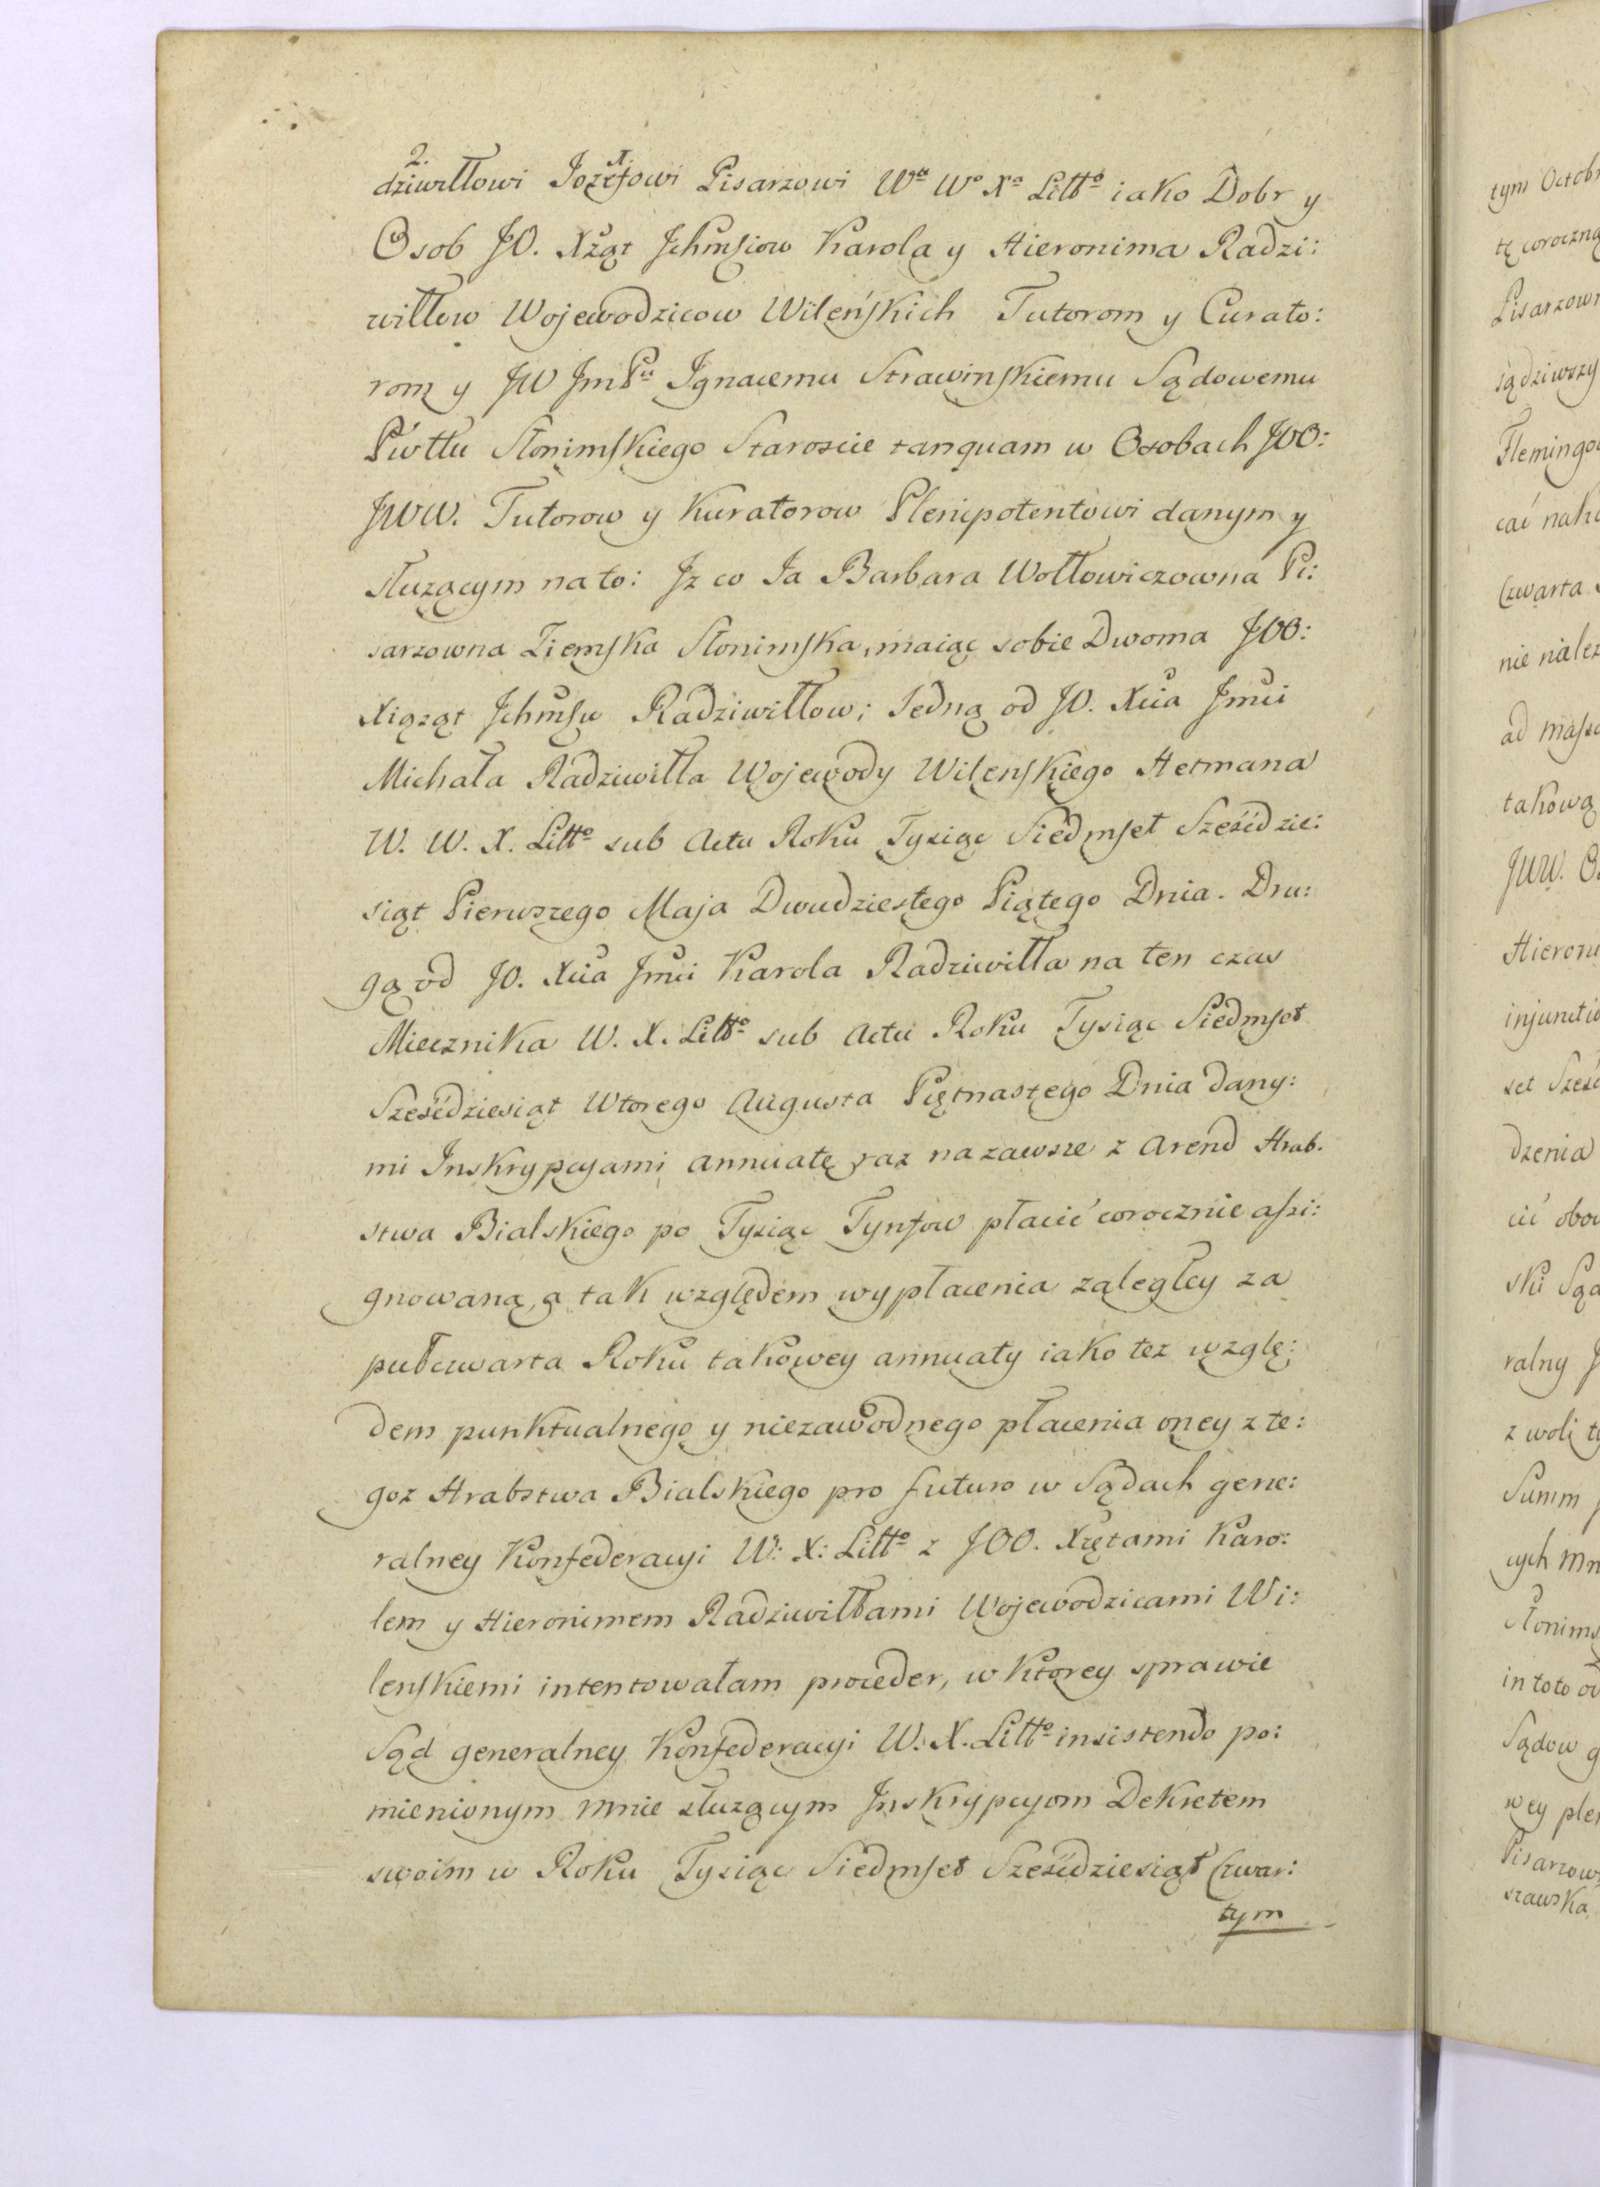 2.
dziwiłłowi Jozefowi Pisarzowi Wu Wo Xa Litto iako Dobr y
Osob JO. Xżąt Jchmsiow Karola y Hieronima Radzi:
wiłłow Wojewodzicow Wileńskich Tutorom y Curato:
rom y JW JmPu Ignacemu Strawinskiemu Sądowemu
Pwttu Słonimskiego Staroscie tanquam w Osobach JOO:
JWW. Tutorow y Kuratorow Plenipotentowi danym y
słuzącym na to: Jz co Ja Barbara Wołłowiczowna Pi:
sarzowna Ziemska Słonimska, maiąc sobie Dwoma JOO:
Xiąząt Jchmsw Radziwiłłow; Jedną od JO. Xcia Jmci
Michała Radziwiłła Wojewody Wilenskiego Hetmana
W. W. X. Litto sub Actu Roku Tysiąc Siedmset Sześćdzie:
siąt Pierwszego Maja Dwudziestego Piątego Dnia. Dru:
gą od JO. Xcia Jmci Karola Radziwiłła na ten czas
Miecznika W. X. Litto sub Actu Roku Tysiąc Siedmset
Sześćdziesiąt Wtorego Augusta Piętnastego Dnia dany:
mi Inskrypcyami annuatę raz nazawsze z Arend Hrab.
stwa Bialskiego po Tysiąc Tynfow płacić corocznie assi:
gnowaną, a tak względem wypłacenia zaległcy za
pułczwarta Roku takowey annuaty iako tez wzglę:
dem punktualnego y niezawodnego płacenia oney z te:
goz Hrabstwa Bialskiego pro futuro w Sądach gene:
ralney Konfederacyi W: X: Litto z JOO. Xzętami Karo:
lem y Hieronimem Radziwiłłami Wojewodzicami Wi:
lenskiemi intentowałam proceder, w ktorey sprawie
Sąd generalney Konfederacyi W. X. Litto insistendo po:
mienionym mnie słuzącym Jnskrypcyom Dekretem
swoim w Roku Tysiąc Siedmset Sześćdziesiąt Czwar:
tym
tym Octobr
tę coroczną
Pisarzown
Flemingo
cać nak
Czwarta
nie nalez
ad mass
takową
JWW. O
Hieroni
injunctio
set Sześć
dzenia
cić obow
ski Sąd
ralny J
z woli ty
Summ p
cych mn
Słonims
in toto od
Sądow g
wey plen
Pisarzow
szawska